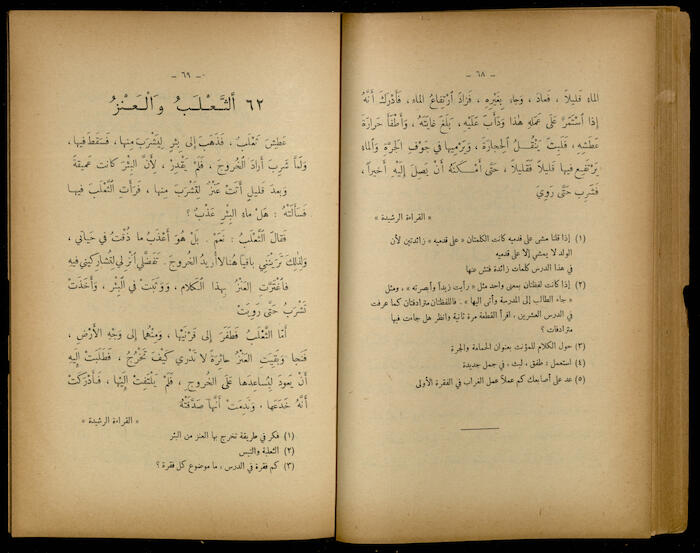 – ٦٨ –
الماء قَليلاً ، فَعادَ ، وَجاءَ بِغَيْرِهِ ، فَزادَ ارْتِفاعُ الماءِ ، فَأَدْرَكَ أَنَّهُ
إِذا اسْتَمَرَّ عَلى عَمَلِهِ هٰذا وَدَأَبَ عَلَيْهِ ، بَلَغَ غايَتَهُ ، وَأَطْفَأَ حَرارَةَ
عَطَشِهِ ، فَلَبِثَ يَنْقُلُ الْحِجارَةَ ، وَيَرْميها في جَوْفِ الْجَرَّةِ وَالماء
يَرْتَفِعُ فيها قَليلاً فَقَليلاً ، حَتَّى أَمْكَنَهُ أَنْ يَصِلَ إِلَيْهِ أَخيراً ،
فَشَرِبَ حَتَّى رَوِيَ
« القراءة الرشيدة »
(١) إذا قلنا مشى على قدميه كانت الكلمتان « على قدميه » زائدتين لأن
الولد لا يمشي إلا على قدميه
في هذا الدرس كلمات زائدة فتش عنها
(٢) إذا كانت لفظتان بمعنى واحد مثل « رأيت زيداً وأبصرته » ، ومثل
« جاء الطالب إلى المدرسة وأتى اليها » . فاللفظتان مترادفتان كما عرفت
في الدرس العشرين ، اقرأ القطعة مرة ثانية وانظر هل جاءت فيها
مترادفات ؟
(٣) حول الكلام للمؤنث بعنوان الحمامة والجرة
(٤) استعمل : طفق ، لبث ، في جمل جديدة
(٥) عد على أصابعك كم عملاً عمل الغراب في الفقرة الأولى
– ٦٩ –
٦٢ اَلثَّعْلَبُ وَالْعَنْزُ
عَطِشَ ثَعْلَبٌ ، فَذَهَبَ إِلى بِئْرٍ لِيَشْرَبَ مِنها ، فَسَقَطَ فيها ،
وَلَمَّا شَرِبَ أَرادَ الْخُروجَ ، فَلَمْ يَقْدِرْ ، لأَنَّ الْبِئْرَ كانَت عَميقَةً
وَبعدَ قَليلٍ أَتَتْ عَنْزٌ لِتَشْرَبَ مِنها ، فَرَأَتِ الثَّعْلَبَ فيها
فَسَأَلَتْهُ : هَلْ ماءُ الْبِئْرِ عَذْبٌ ؟
فَقالَ الثَّعْلَبُ : نَعَمْ . بَلْ هُوَ أَعْذَبُ ما ذُقْتُ في حَياتي ،
وَلِذٰلِكَ تَرَيْنَني باقياً هُنا لا أُريدُ الْخُروجَ . تَفَضَّلي انْزِلي لِتُشارِكيني فيهِ
فَاغْتَرَّتِ الْعَنْزُ بِهذا الْكَلامِ ، وَوَثَبَتْ في الْبِئْرِ ، وَأَخَذَتْ
تَشْرَبُ حَتَّى رَوِيَتْ
أَمّا الثَّعْلَبُ فَطَفَرَ إِلى قَرْنَيْها ، وَمِنْهُما إِلى وَجْهِ الأَرْضِ ،
فَنَجا وَبَقِيَتِ الْعَنْزُ حائِرَةً لا تَدْري كَيْفَ تَخْرُجُ ، فَطَلَبَتْ إِلَيْهِ
أَنْ يَعودَ لِيُساعِدَها عَلى الْخُروجِ ، فَلَمْ يَلْتَفِتْ إِلَيْها ، فَأَدْرَكَتْ
أَنَّهُ خَدَعَها ، وَنَدِمَتْ أَنَّها صَدَّقَتْهُ
« القراءة الرشيدة »
(١) فكر في طريقة تخرج بها العنز من البئر
(٢) الثعلبة والتيس
(٣) كم فقرة في الدرس ، ما موضوع كل فقرة ؟